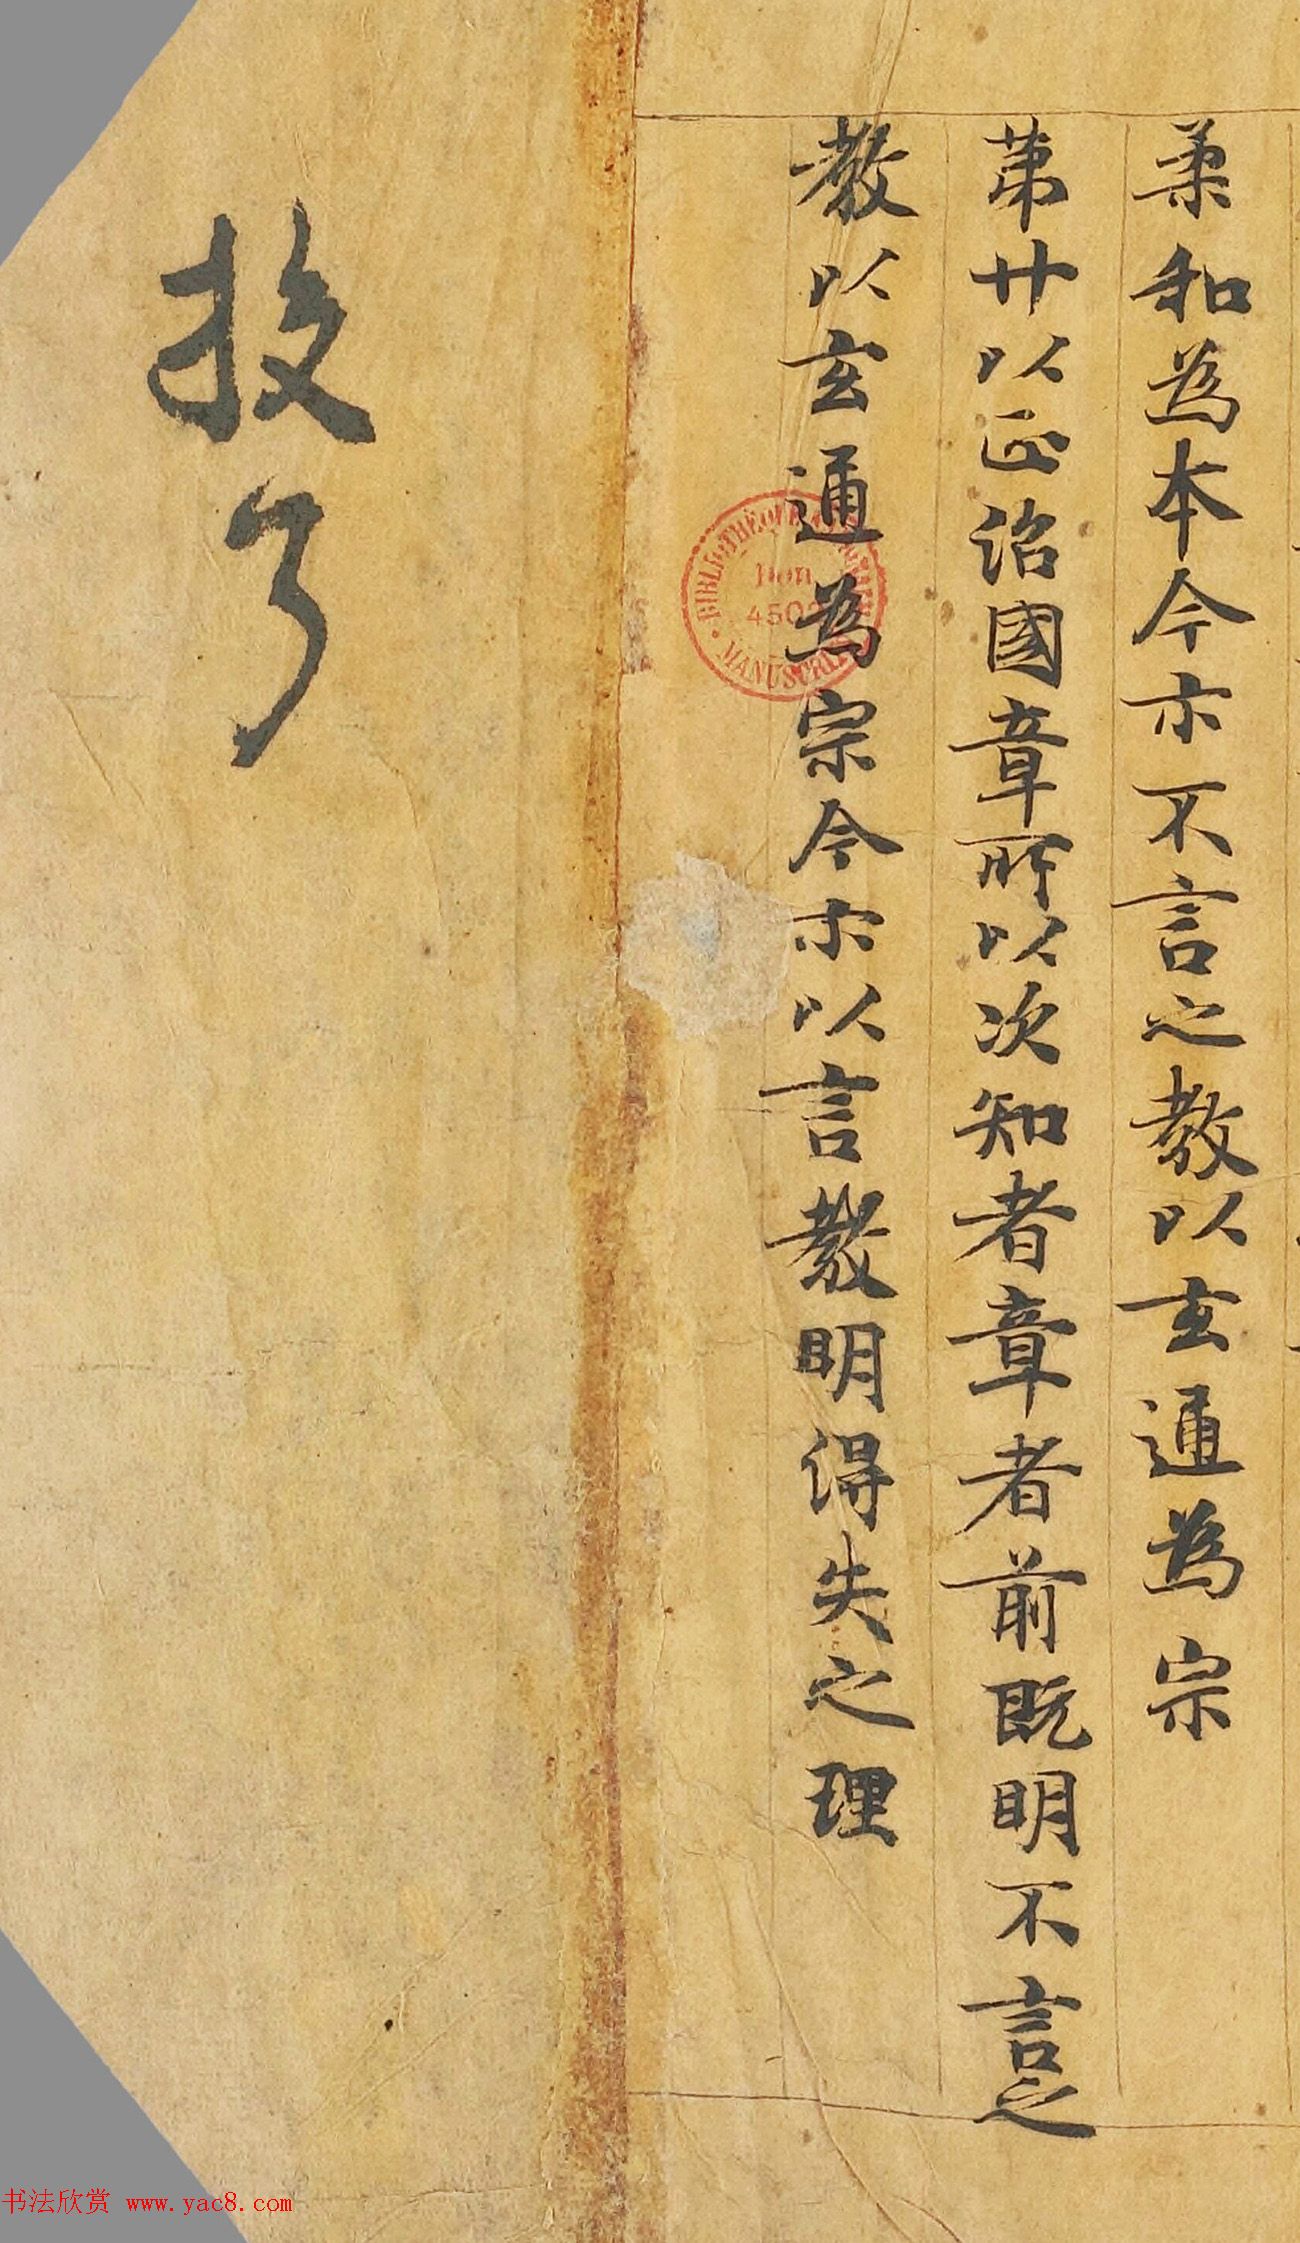 柔和為本今亦不言之教以玄通為宗
苐廿以正治國章所以次知者章者前既明不言之
教以玄通為宗今亦以言教明得失之理
投了
BIBLIOTHÈQUE MANUSCRITS
Don
450
书法欣赏 www.yac8.com